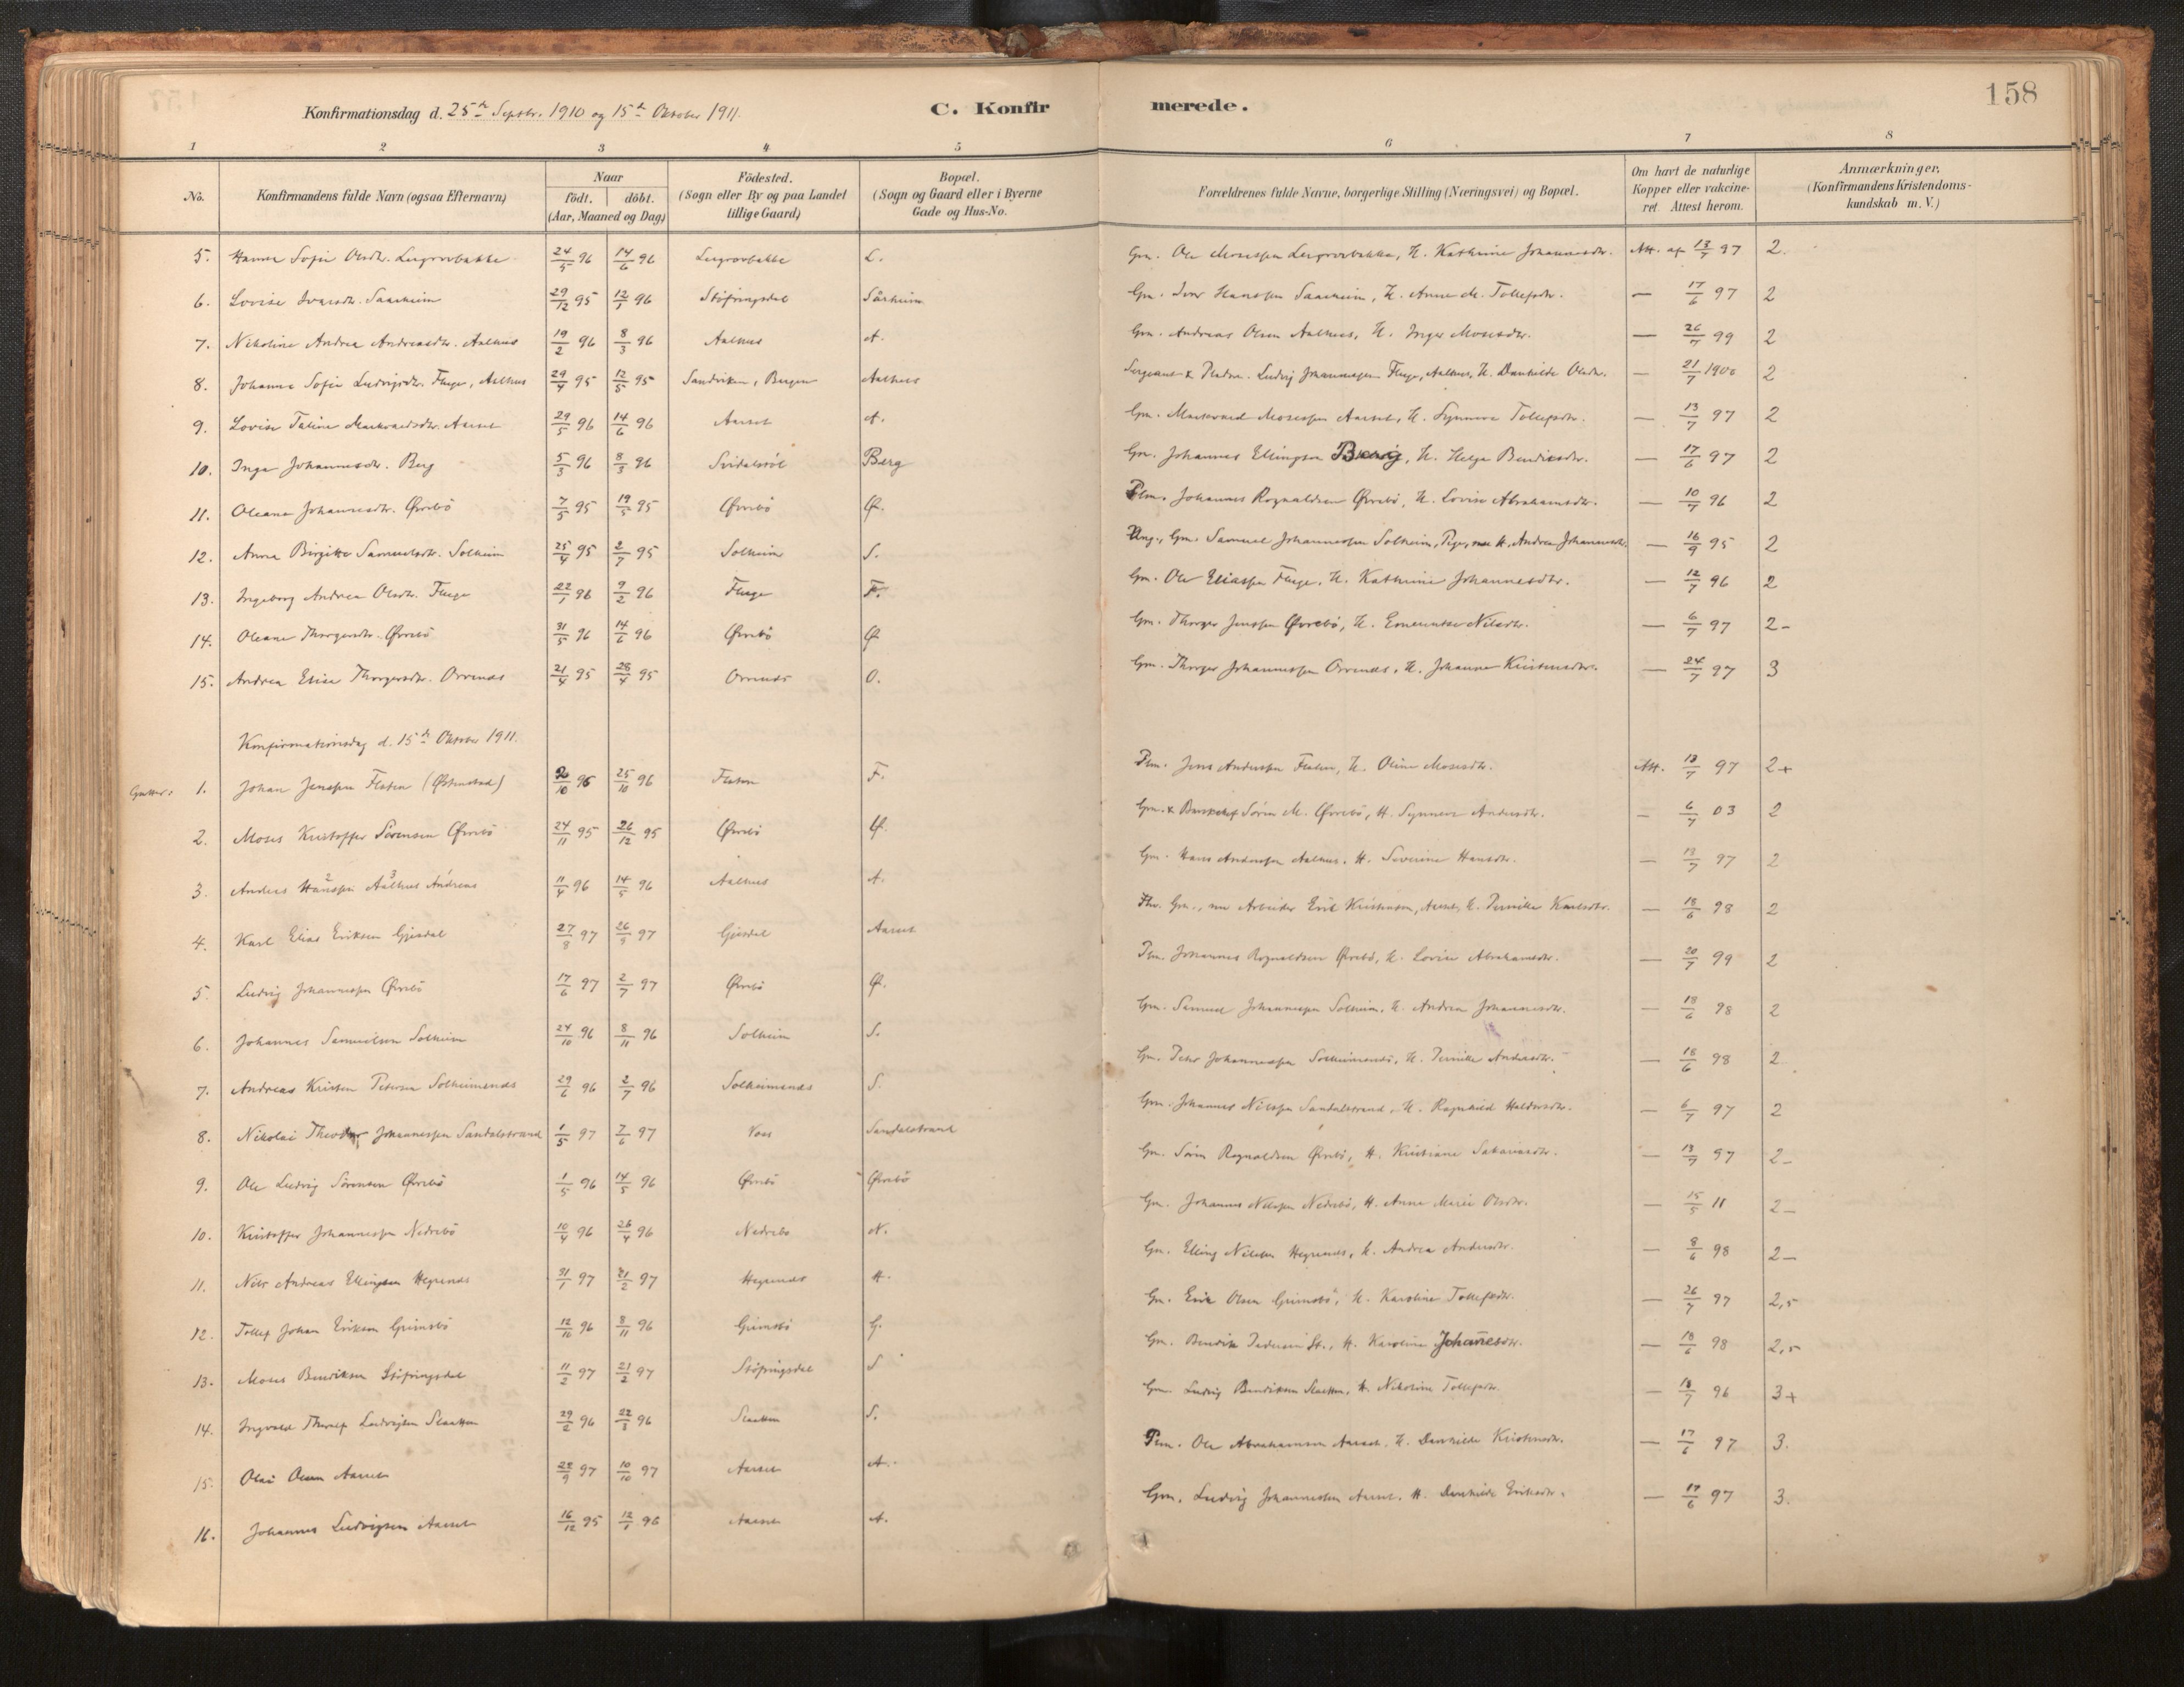 158
Konfirmationsdag d. 25de Septbr. 1910 og 15de Oktober 1911.
C. Konfirmerede.
1 2 3 4 5 6 7 8
No. Konfirmandens fulde Navn (ogsaa Efternavn) Naar födt. döbt. (Aar, Maaned og Dag) Födested. (Sogn eller By og paa Landet tillige Gaard) Bopæl. (Sogn og Gaard eller i Byerne Gade og Hus-No. Forældrenes fulde Navne, borgerlige Stilling (Næringsvei) og Bopæl. Om havt de naturlige Kopper eller vakcineret Attest herom. Anmærkninger. (Konfirmandens Kristendomskundskab m. V.)
5. Hanna Sofie Olsdtr. Lergrovbakke 24/5 96 14/6 96 Lergrovbakke L. Gm. Ole Mosessen Lergrovbakke, H. Kathrine Johannesdtr. Att. af 13/7 97 2.
6. Lovise Ivarsdtr. Saarheim 29/12 95 12/1 96 Stöfringsdal Sårheim Gm. Ivar Hanssen Saarheim, H. Anne M. Tollefsdtr. — 17/6 97 2
7. Nikoline Andrea Andreasdtr. Aalhus 19/2 96 8/3 96 Aalhus A. Gm. Andreas Olsen Aalhus, H. Inger Mosesdtr. — 26/7 99 2
8. Johanne Sofie Ludvigsdtr. Fluge, Aalhus 29/4 95 12/5 95 Sandviken, Bergen Aalhus Sergeant & Ludvig Johannessen Fluge, Aalhus, H. Danhilde Olsdtr. — 21/7 1900 2
9. Lovise Taline Markvardsdtr. Aarset 29/5 96 14/6 96 Aarset A. Gm. Markvard Mosessen Aarset, H. Synneve Tollefsdtr. — 13/7 97 2
10. Inga Johannesdtr. Berg 5/3 96 8/3 96 Svidalsröl Berg Gm. Johannes Ellingsen Berg, H. Helga Bendiksdtr. — 17/6 97 2
11. Oleana Johannesdtr. Øvrebö 7/5 95 19/5 95 Øvrebö Ø. Plm. Johannes Rognaldsen Øvrebö, H. Lovise Abrahamsdtr. — 10/7 96 2
12. Anna Birgitte Samuelsdtr. Solheim 25/4 95 2/7 95 Solheim S. Ung., Gm. Samuel Johannessen Solheim, Pige, nu H. Andrea Johannesdtr. — 16/9 95 2
13. Ingeborg Andrea Olsdtr. Fluge 22/1 96 9/2 96 Fluge F. Gm. Ole Eliassen Fluge, H. Kathrine Johannesdtr. — 12/7 96 2
14. Oleane Thorgersdtr. Øvrebö 31/5 96 14/6 96 Øvrebö Ø Gm. Thorger Jenssen Øvrebö, H. Emerentse Nilsdtr. — 6/7 97 2-
15. Andrea Elisa Thorgersdtr. Orrenæs 21/4 95 28/4 95 Orrenæs O. Gm. Thorger Johannessen Orrenæs, H. Johanne Kristensdtr. — 24/7 97 3
Konfirmationsdag d. 15de Oktober 1911.
Gutter: 1. Johan Jenssen Flaten (Østenstad) 2/10 96 25/10 96 Flaten F. Plm. Jens Anderssen Flaten, H. Oline Mosesdtr. Att. 13/7 97 2+
2. Moses Kristoffer Sörensen Øvrebö 24/11 95 26/12 95 Øvrebö Ø. Gm. & Sören M. Øvrebö, H. Synneve Andersdtr. — 6/7 03 2
3. Anders Hanssen 2 Aalhus 3 Andreas 11/4 96 14/5 96 Aalhus A. Gm. Hans Anderssen Aalhus, H. Severine Hansdtr. — 13/7 97 2
4. Karl Elias Eriksen Gjesdal 27/8 97 26/9 97 Gjesdal Aarset Fhv. Gm., nu Arbeider Erik Kristensen, Aarset, H. Pernille Karlsdtr. — 18/6 98 2
5. Ludvig Johannessen Øvrebö 17/6 97 2/7 97 Øvrebö Ø. Plm. Johannes Rognaldsen Øvrebö, H. Lovise Abrahamsdtr. — 20/7 99 2
6. Johannes Samuelsen Solheim 24/10 96 8/11 96 Solheim S. Gm. Samuel Johannessen Solheim, H. Andrea Johannesdtr. — 18/6 98 2
7. Andreas Kristen Petersen Solheimsnæs 29/6 96 2/7 96 Solheimsnæs S. Gm. Peter Johannessen Solheimsnæs, H. Pernille Andersdtr. — 18/6 98 2
8. Nikolai Theodor Johannessen Sandalstrand 1/5 97 7/6 97 Voss Sandalstrand Gm. Johannes Nilssen Sandalstrand, H. Ragnhild Haldorsdtr. — 6/7 97 2
9. Ole Ludvig Sörensen Øvrebö 1/5 96 14/5 96 Øvrebö Øvrebö Gm. Sören Rognaldsen Øvrebö, H. Kristiane Sakariasdtr. — 13/7 97 2-
10. Kristoffer Johannessen Nedrebö 10/4 96 26/4 96 Nedrebö N. Gm. Johannes Nilssen Nedrebö, H. Anne Marie Olsdtr. — 15/5 11 2-
11. Nils Andreas Ellingsen Hegrenæs 31/1 97 21/2 97 Hegrenæs H. Gm. Elling Nilssen Hegrenæs, H. Andrea Andersdtr. — 8/6 98 2-
12. Tollef Johan Eriksen Grimsbö 12/10 96 8/11 96 Grimsbö G. Gm. Erik Olsen Grimsbö, H. Karoline Tollefsdtr. — 26/7 97 2,5
13. Moses Bendiksen Stöfringsdal 11/2 97 21/2 97 Stöfringsdal S Gm. Bendik Pedersen St., H. Karoline Johanesdtr. — 18/6 98 2,5
14. Ingvald Thorolf Ludvigsen Slaatten 29/2 96 22/3 96 Slaatten S. Gm. Ludvig Bendiksen Slaatten, H. Nikoline Tollefsdtr. — 18/7 96 3+
15. Olai Olsen Aarset 22/9 97 10/10 97 Aarset A. Plm. Ole Abrahamsen Aarset, H. Danhilde Kristensdtr. — 17/6 97 3.
16. Johannes Ludvigsen Aarset 16/12 95 12/1 96 Aarset A. Gm. Ludvig Johannessen Aarset, H. Danhilde Eriksdtr. — 17/6 97 3.